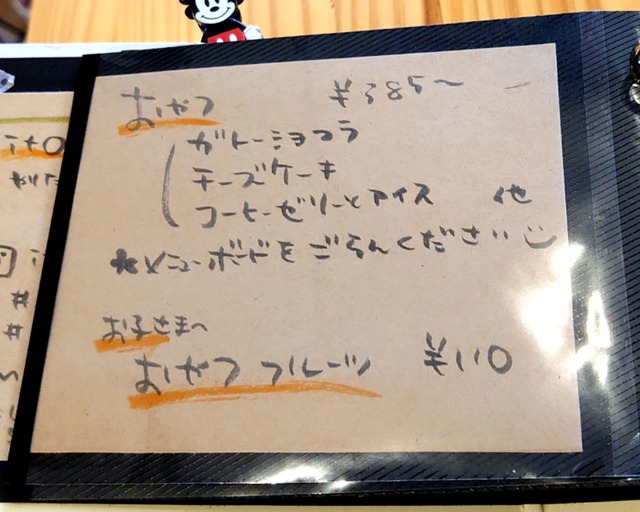 おやつ ¥385〜
ガトーショコラ
チーズケーキ
コーヒーゼリーとアイス 他
*メニューボードをごらんください
お子さまへ
おやつフルーツ ¥110